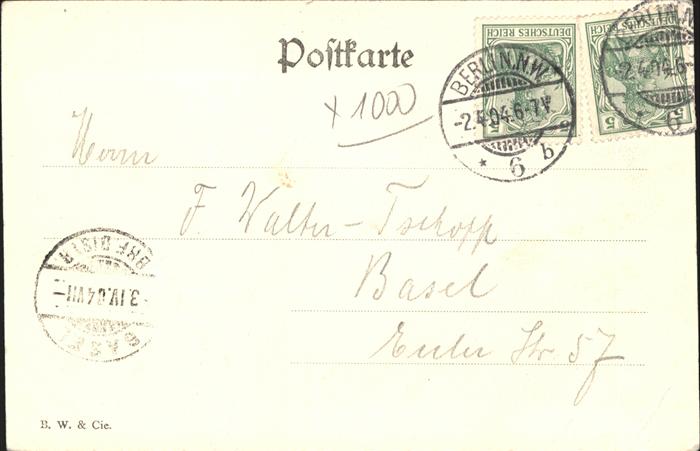 Postkarte
DEUTSCHES REICH
5
DEUTSCHES REICH
5
5
BERLIN, N.W.
-2.4.04.6-7V.
* 6 b
BERLIN, N.W.
-2.4.04.6-
* 6
+ 1000
Herrn
F. Walter-Tschopp
Basel
Euler Str. 57
BASEL
-3.IV.04 VII-
BRF. DISTR
B. W. & Cie.